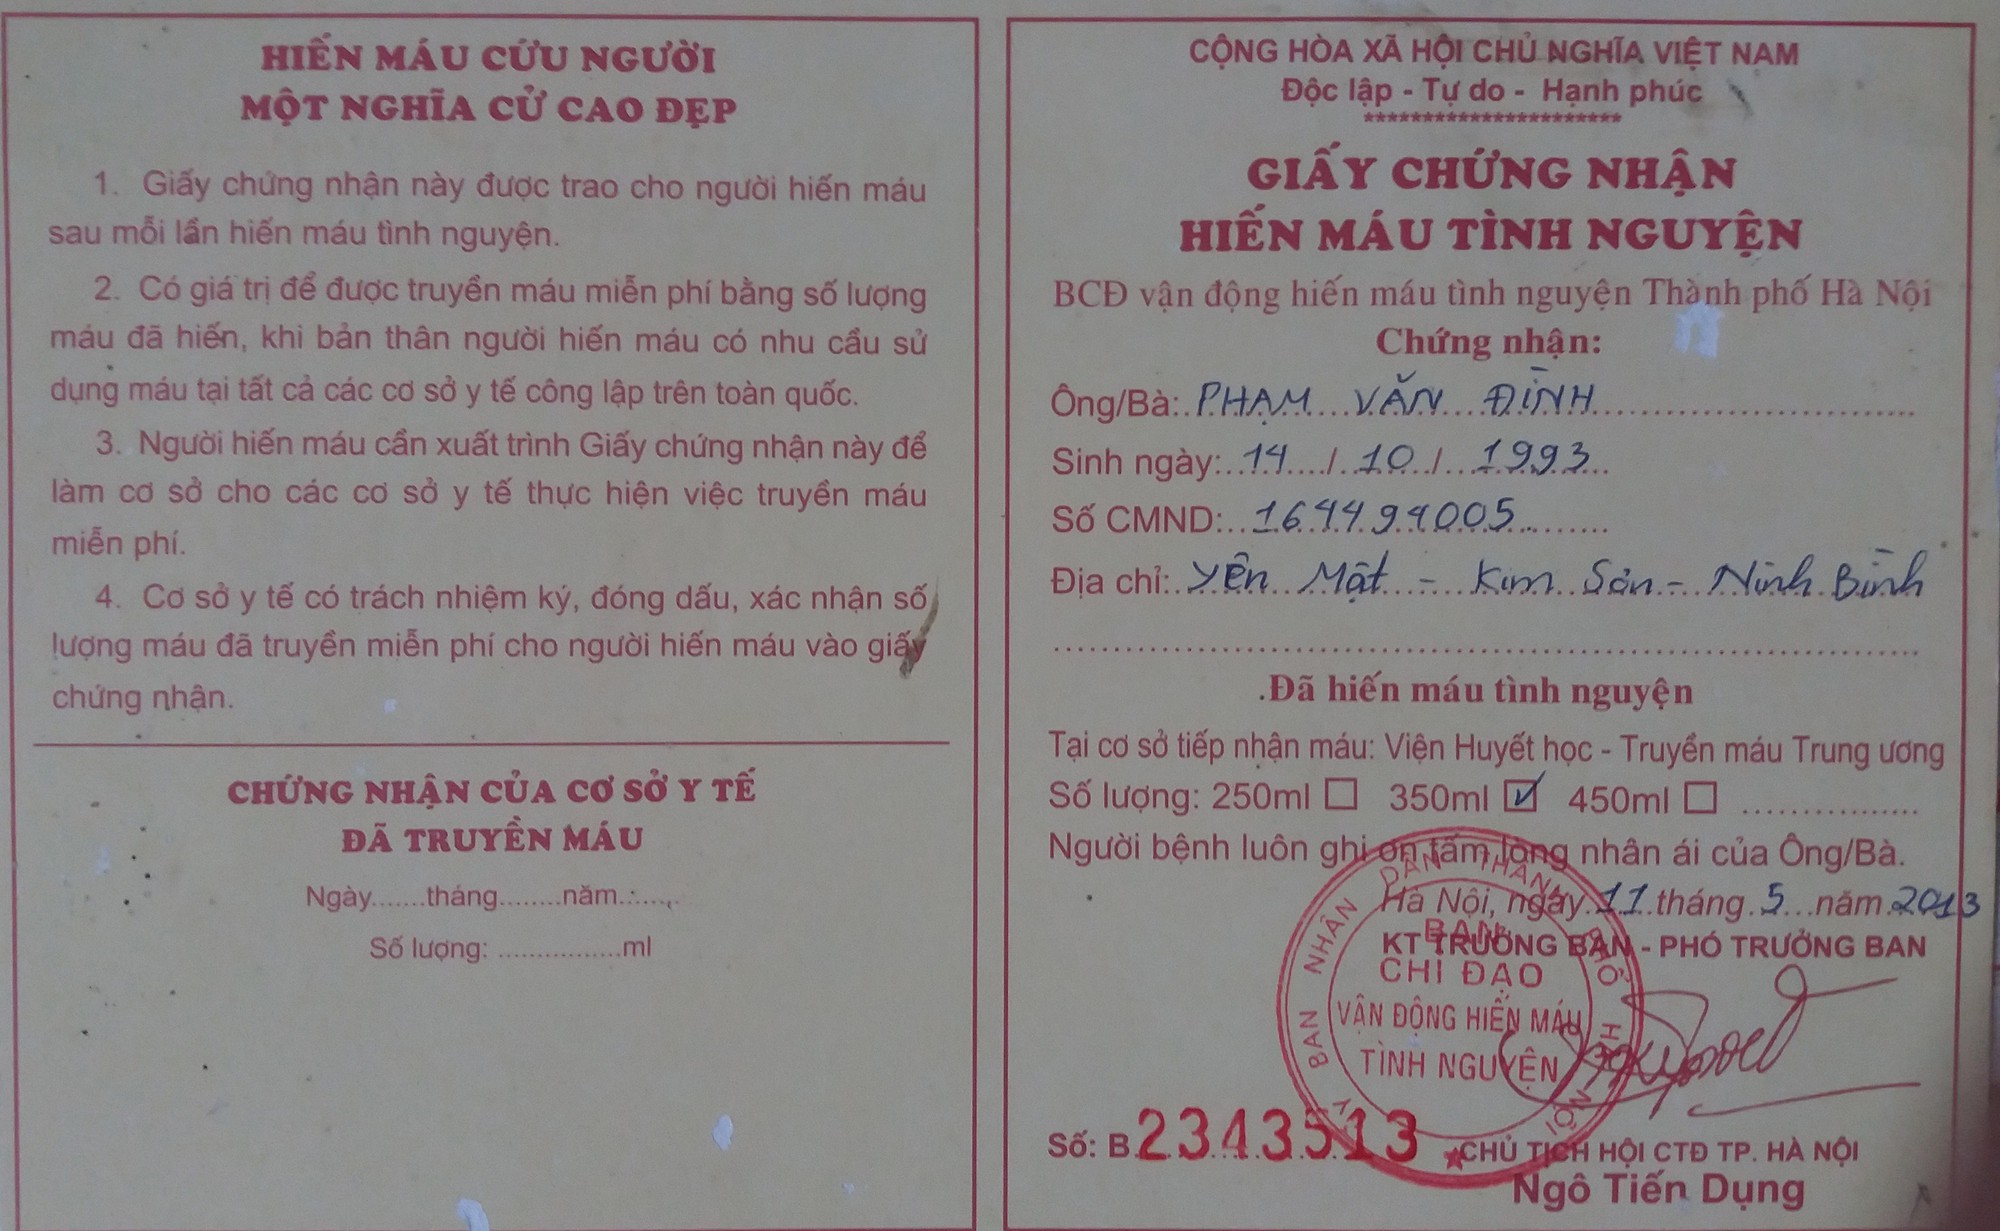 HIẾN MÁU CỨU NGƯỜI
MỘT NGHĨA CỬ CAO ĐẸP
1. Giấy chứng nhận này được trao cho người hiến máu
sau mỗi lần hiến máu tình nguyện.
2. Có giá trị để được truyền máu miễn phí bằng số lượng
máu đã hiến, khi bản thân người hiến máu có nhu cầu sử
dụng máu tại tất cả các cơ sở y tế công lập trên toàn quốc.
3. Người hiến máu cần xuất trình Giấy chứng nhận này để
làm cơ sở cho các cơ sở y tế thực hiện việc truyền máu
miễn phí.
4. Cơ sở y tế có trách nhiệm ký, đóng dấu, xác nhận số
lượng máu đã truyền miễn phí cho người hiến máu vào giấy
chứng nhận.
CHỨNG NHẬN CỦA CƠ SỞ Y TẾ
ĐÃ TRUYỀN MÁU
Ngày.......tháng........năm........
Số lượng: ................ml
CỘNG HÒA XÃ HỘI CHỦ NGHĨA VIỆT NAM
Độc lập - Tự do - Hạnh phúc
**********************
GIẤY CHỨNG NHẬN
HIẾN MÁU TÌNH NGUYỆN
BCĐ vận động hiến máu tình nguyện Thành phố Hà Nội
Chứng nhận:
Ông/Bà: PHẠM VĂN ĐÌNH
Sinh ngày: 14 / 10 / 1993
Số CMND: 164494005
Địa chỉ: Yên Mật - Kim Sơn - Ninh Bình
Đã hiến máu tình nguyện
Tại cơ sở tiếp nhận máu: Viện Huyết học - Truyền máu Trung ương
Số lượng: 250ml ☐ 350ml ☑ 450ml ☐
Người bệnh luôn ghi ơn tấm lòng nhân ái của Ông/Bà.
Hà Nội, ngày 11 tháng 5 năm 2013
KT TRƯỞNG BAN - PHÓ TRƯỞNG BAN
ỦY BAN NHÂN DÂN THÀNH PHỐ HÀ NỘI
BAN
CHỈ ĐẠO
VẬN ĐỘNG HIẾN MÁU
TÌNH NGUYỆN
Số: B 2343513
CHỦ TỊCH HỘI CTĐ TP. HÀ NỘI
Ngô Tiến Dụng